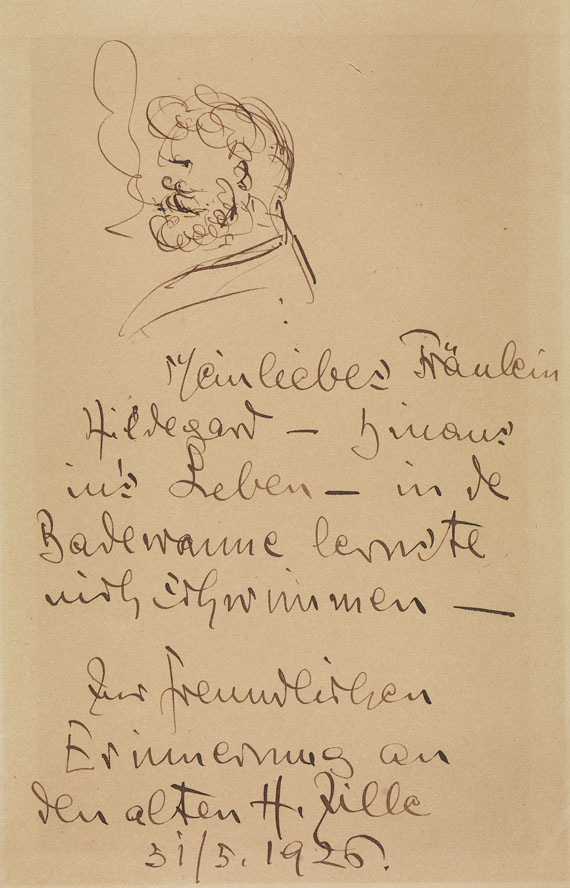 Mein liebes Fräulein
Hildegard – hinaus
in's Leben – in de
Badewanne lernste
nich schwimmen –
Zur freundlichen
Erinnerung an
den alten H. Zille
31/5. 1926.